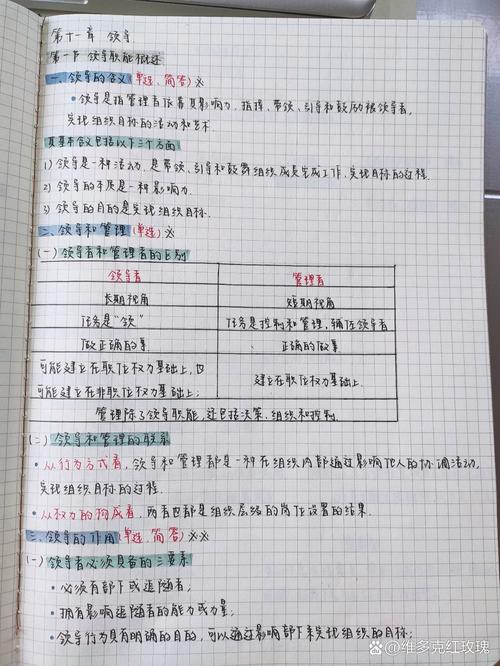 第十一章 领导
第一节 领导职能概述
一、领导的含义(单选、简答)※
• 领导是指管理者依靠其影响力，指挥、带领、引导和鼓励被领导者，
实现组织目标的活动和艺术.
其基本含义包括以下三个方面
1) 领导是一种活动，是带领、引导和鼓舞组织成员完成工作、实现目标的过程.
2) 领导的本质是一种影响力.
3) 领导的目的是实现组织目标.
二、领导和管理(单选)※
(一) 领导者和管理者的区别
领导者 管理者
长期视角 短期视角
任务是“领” 任务是控制和管理，辅佐领导者
做正确的事 正确的做事
可能建立在职位权力基础上，也
可能建立在非职位权力基础上; 建立在职位权力基础上.
管理除了领导职能，还包括决策、组织和控制.
(二) 领导和管理的联系
• 从行为方式看，领导和管理都是一种在组织内部通过影响他人的协调活动，
实现组织目标的过程.
• 从权力的构成看，两者也都是组织层级的岗位设置的结果.
三、领导的作用(单选、简答)※※
(一) 领导者必须具备的三要素
• 必须有部下或追随者;
• 拥有影响追随者的能力或力量;
• 领导行为具有明确的目的，可以通过影响部下来实现组织的目标;
维多克红玫瑰